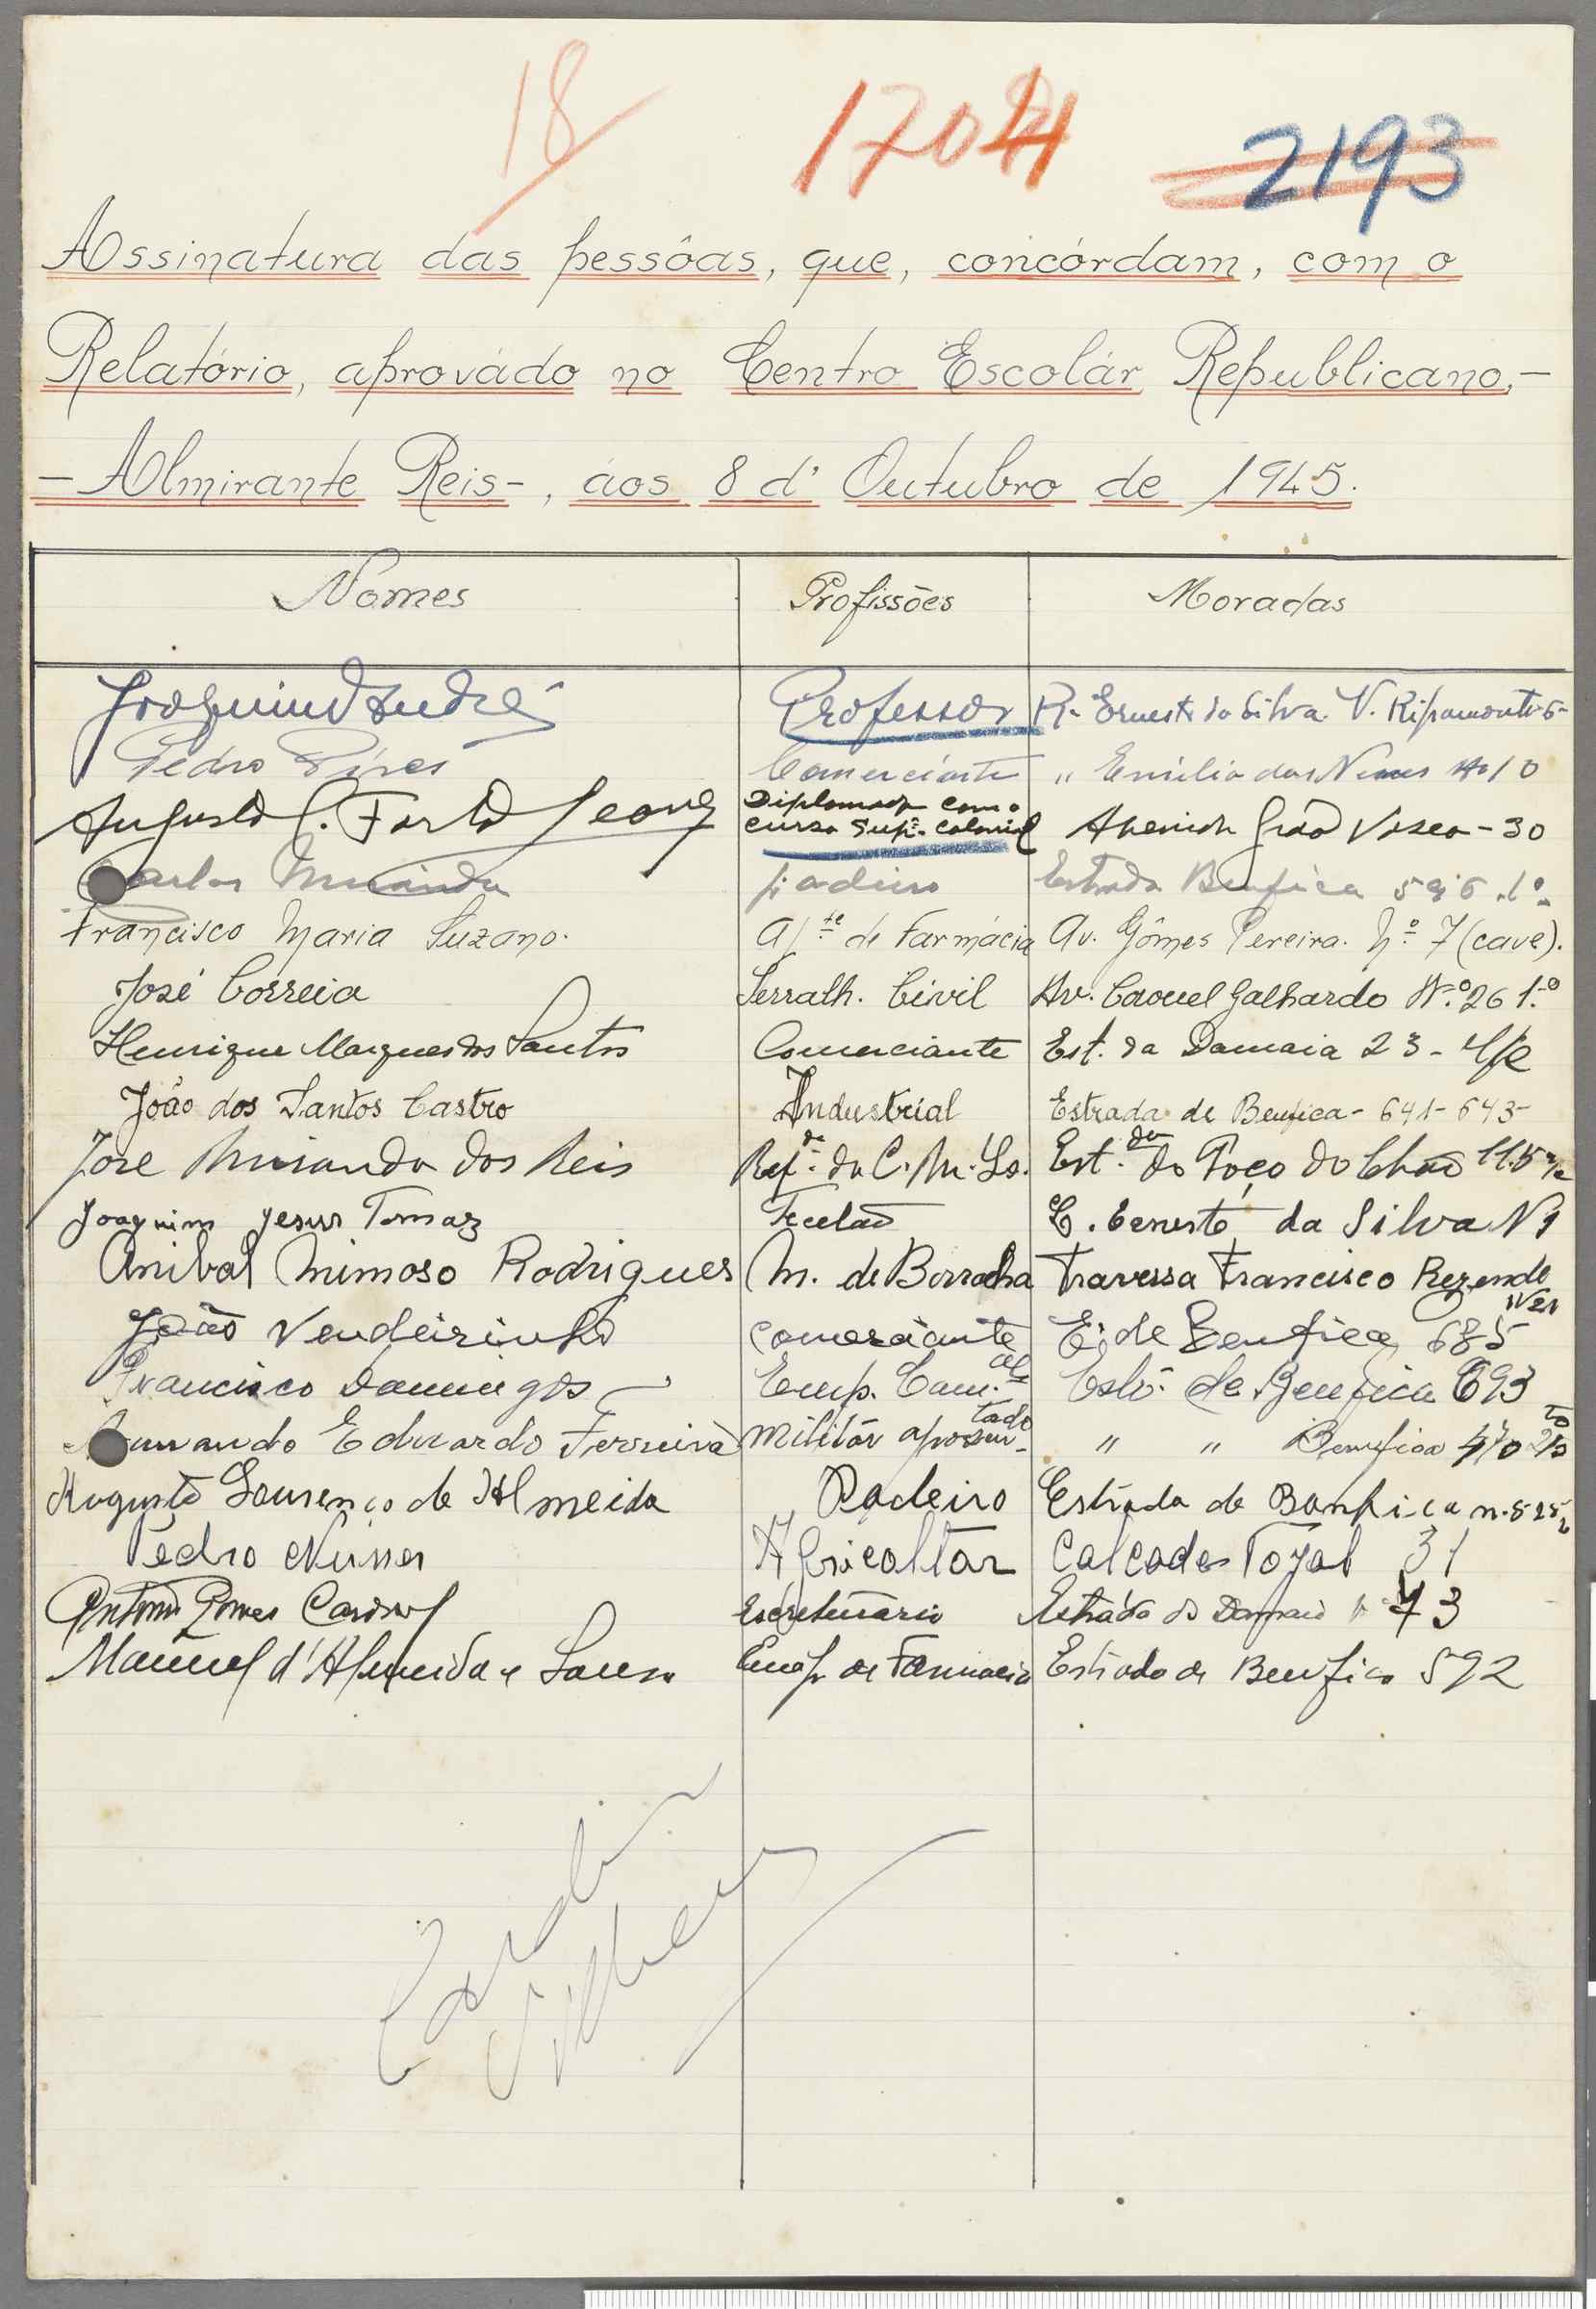 18
1704
2193
Assinatura das pessôas, que, concórdam, com o
Relatório, aprovádo no Centro Escolár Republicano,-
- Almirante Reis-, áos 8 d' Outubro de 1945.
Nomes Profissões Moradas
Joaquim André Professor R. Ernesto da Silva. V. Ripamonti-6-
Pedro Pires Comerciante " Emilia das Neves Nº 10
Augusto C. Diplomado com o curso Supr. Colonial Avenida Grão Vasco - 30
Carlos Miranda padeiro Estrada Benfica 1º
Francisco Maria Suzano. Aj.te de Farmácia Av. Gômes Pereira. Nº 7 (cave).
José Correia Serralh. Civil Av. Caouel Galhardo Nº 26 1.º
Henrique Marques dos Santos Comerciante Est. da Damaia 23 - r/c
João dos Santos Castro Industrial Estrada de Benfica - 641 - 643 -
José Miranda dos Reis Ref.do da C. M. Lx. Est.da do Poço do Chão 115 r/c
Joaquim Jesus Tomaz Tecelão C. Ernesto da Silva N 1
Anibal Mimoso Rodrigues M. de Borracha Travessa Francisco Rezende Nº 21
João Vendeirinho comerciante E. de Benfica 685
Francisco Domingos Emp. Com.al Estr. de Benfica 693
Armando Eduardo Ferreira Militár aposentado " " Benfica 470
Augusto Lourenço de Almeida Padeiro Estrada de Banfica n.
Pedro Nunes Agricoltor Calcada do Tojal 31
Antonio Gomes Cardoso Escriturário Estrada da Damaia 73
Manuel d'Almeida e Sousa Emp. de Farmacia Estrada de Benfica 592